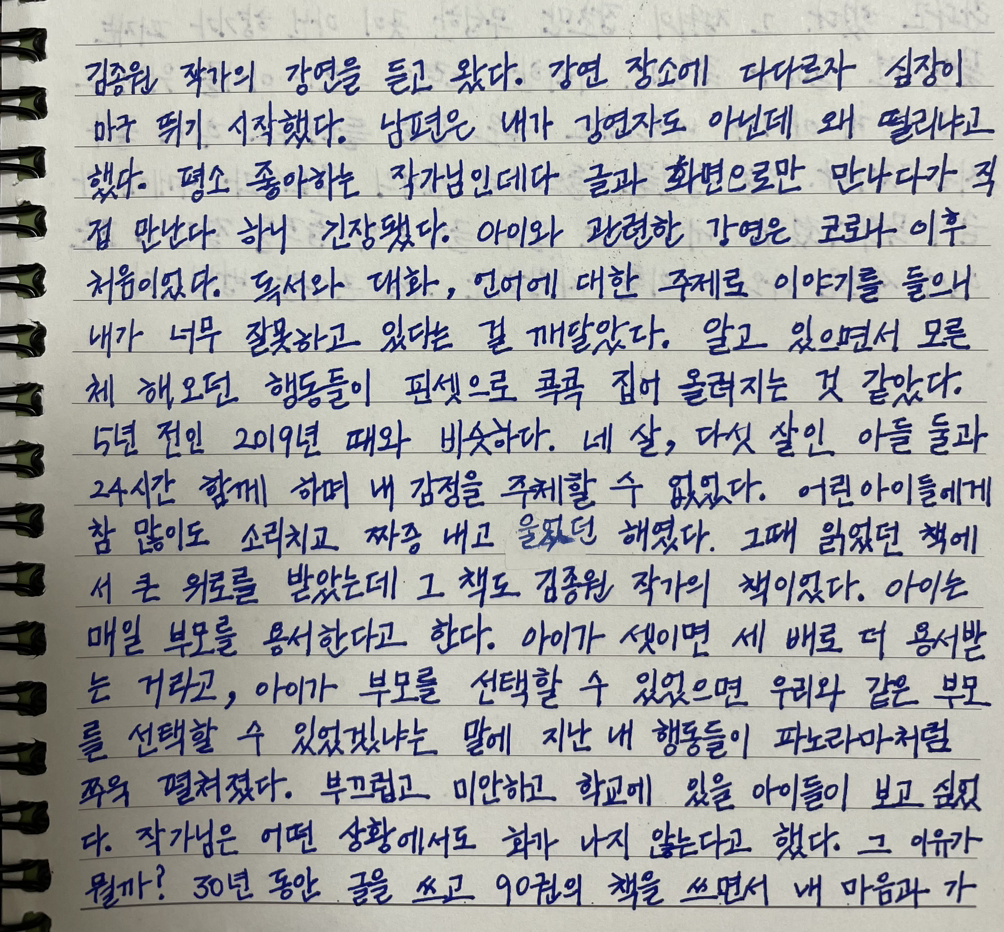 김종원 작가의 강연을 듣고 왔다. 강연 장소에 다다르자 심장이
마구 뛰기 시작했다. 남편은 내가 강연자도 아닌데 왜 떨리냐고
했다. 평소 좋아하는 작가님인데다 글과 화면으로만 만나다가 직
접 만난다 하니 긴장됐다. 아이와 관련한 강연은 코로나 이후
처음이었다. 독서와 대화, 언어에 대한 주제로 이야기를 들으니
내가 너무 잘못하고 있다는 걸 깨달았다. 알고 있으면서 모른
체 해오던 행동들이 핀셋으로 콕콕 집어 올려지는 것 같았다.
5년 전인 2019년 때와 비슷하다. 네 살, 다섯 살인 아들 둘과
24시간 함께 하며 내 감정을 주체할 수 없었다. 어린아이들에게
참 많이도 소리치고 짜증 내고 울었던 해였다. 그때 읽었던 책에
서 큰 위로를 받았는데 그 책도 김종원 작가의 책이었다. 아이는
매일 부모를 용서한다고 한다. 아이가 셋이면 세 배로 더 용서받
는 거라고, 아이가 부모를 선택할 수 있었으면 우리와 같은 부모
를 선택할 수 있었겠냐는 말에 지난 내 행동들이 파노라마처럼
쭈욱 펼쳐졌다. 부끄럽고 미안하고 학교에 있을 아이들이 보고 싶었
다. 작가님은 어떤 상황에서도 화가 나지 않는다고 했다. 그 이유가
뭘까? 30년 동안 글을 쓰고 90권의 책을 쓰면서 내 마음과 가